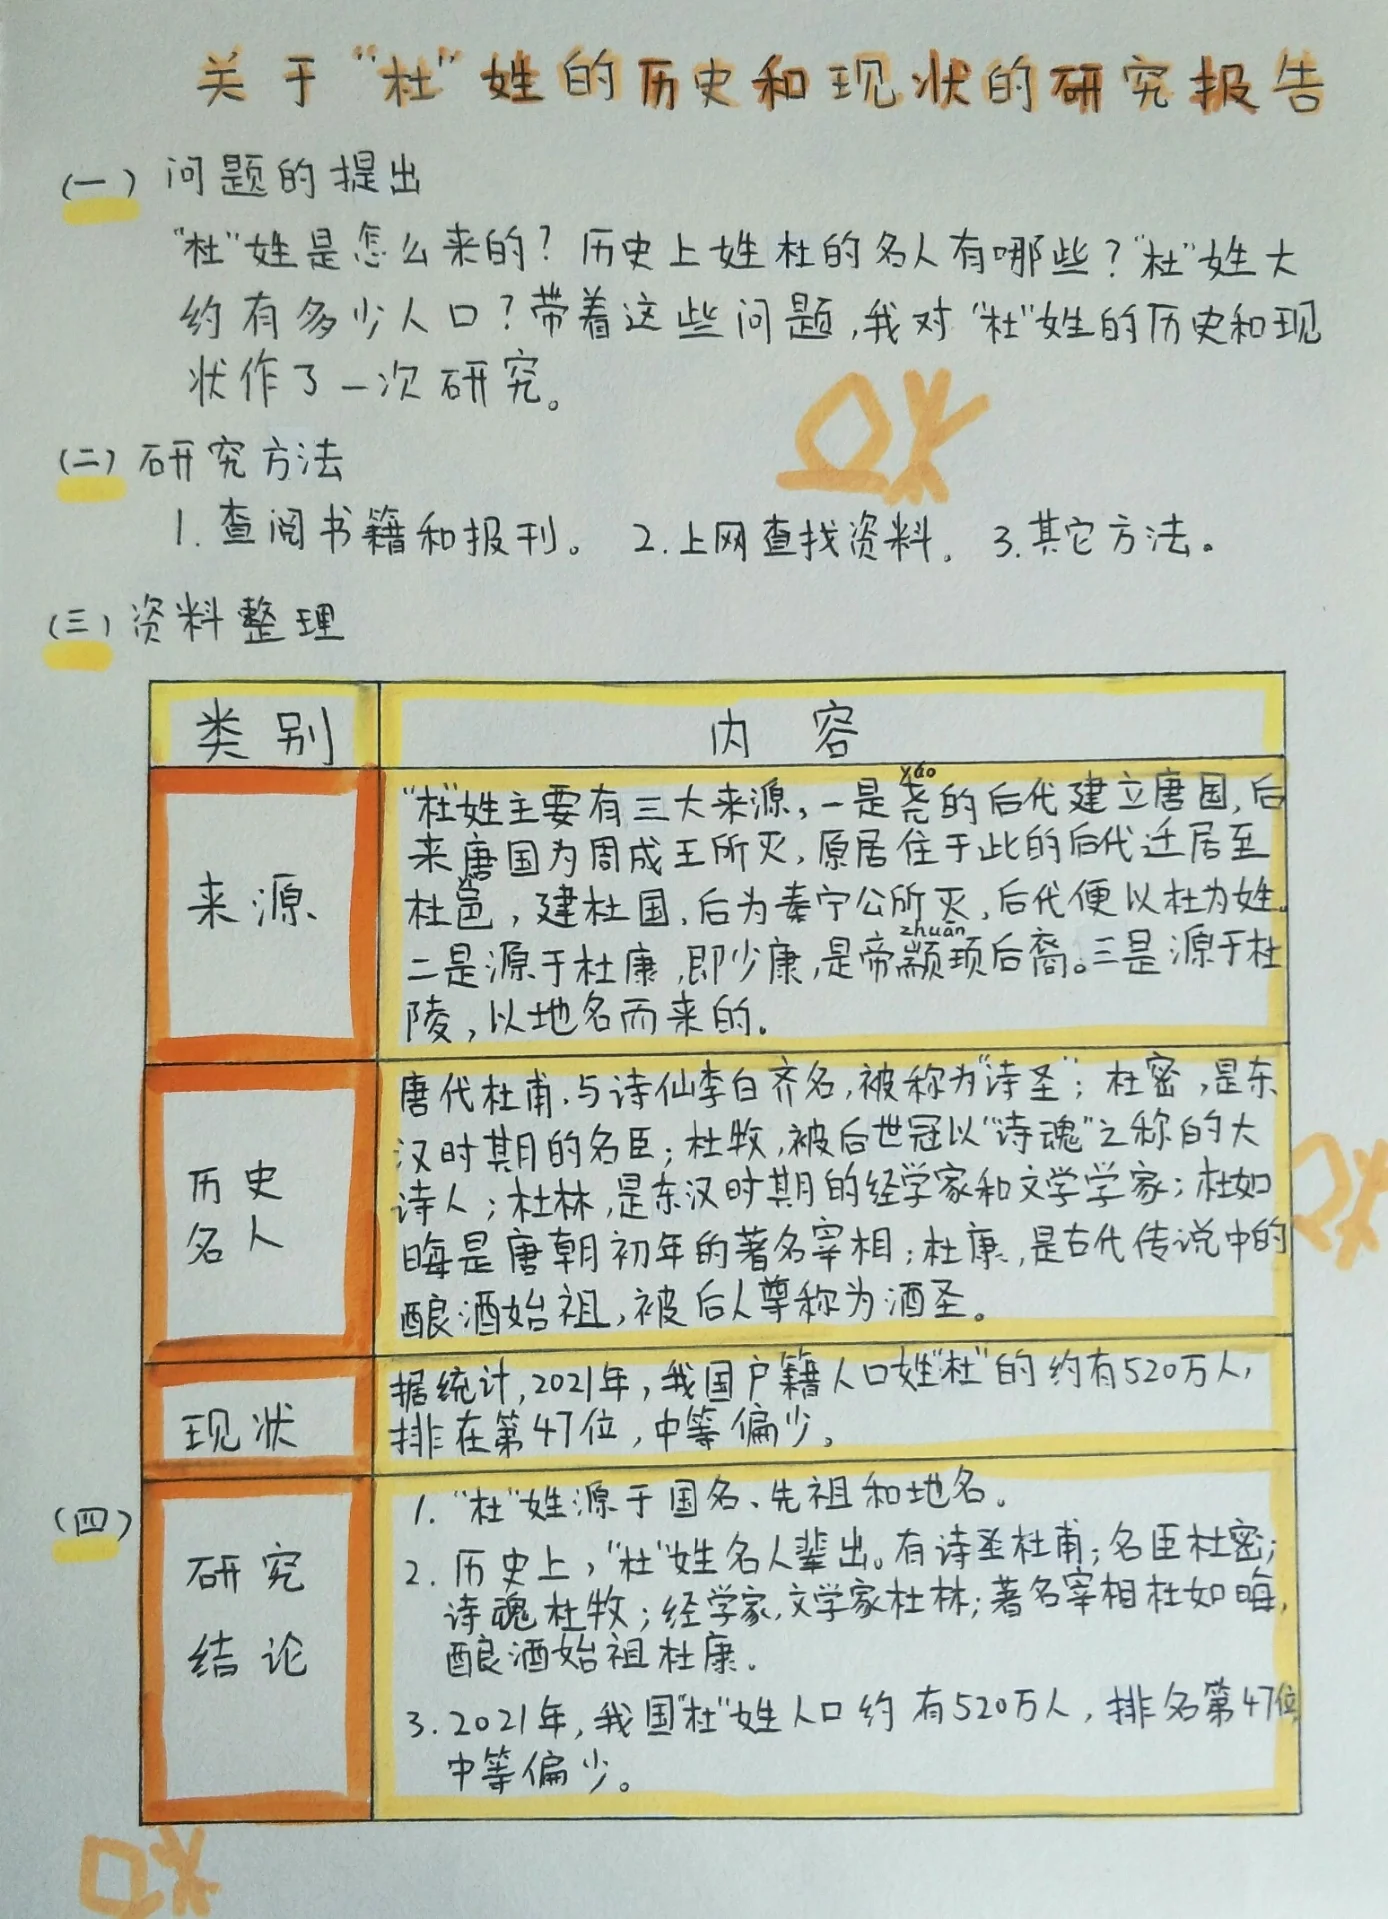 关于“杜”姓的历史和现状的研究报告
(一) 问题的提出
“杜”姓是怎么来的？历史上姓杜的名人有哪些？“杜”姓大
约有多少人口？带着这些问题，我对“杜”姓的历史和现
状作了一次研究。
(二) 研究方法
1. 查阅书籍和报刊。 2.上网查找资料。 3.其它方法。
(三) 资料整理
类别 内容
来源
yáo
“杜”姓主要有三大来源，一是尧的后代建立唐国，后
来唐国为周成王所灭，原居住于此的后代迁居至
杜邑，建杜国，后为秦宁公所灭，后代便以杜为姓。
zhuān
二是源于杜康，即少康，是帝颛顼后裔。三是源于杜
陵，以地名而来的。
历史
名人
唐代杜甫，与诗仙李白齐名，被称为“诗圣”；杜密，是东
汉时期的名臣；杜牧，被后世冠以“诗魂”之称的大
诗人；杜林，是东汉时期的经学家和文学学家；杜如
晦是唐朝初年的著名宰相；杜康，是古代传说中的
酿酒始祖，被后人尊称为酒圣。
现状
据统计，2021年，我国户籍人口姓“杜”的约有520万人，
排在第47位，中等偏少。
(四)
研究
结论
1. “杜”姓源于国名、先祖和地名。
2. 历史上，“杜”姓名人辈出。有诗圣杜甫；名臣杜密；
诗魂杜牧；经学家，文学家杜林；著名宰相杜如晦，
酿酒始祖杜康。
3. 2021年，我国“杜”姓人口约有520万人，排名第47位，
中等偏少。